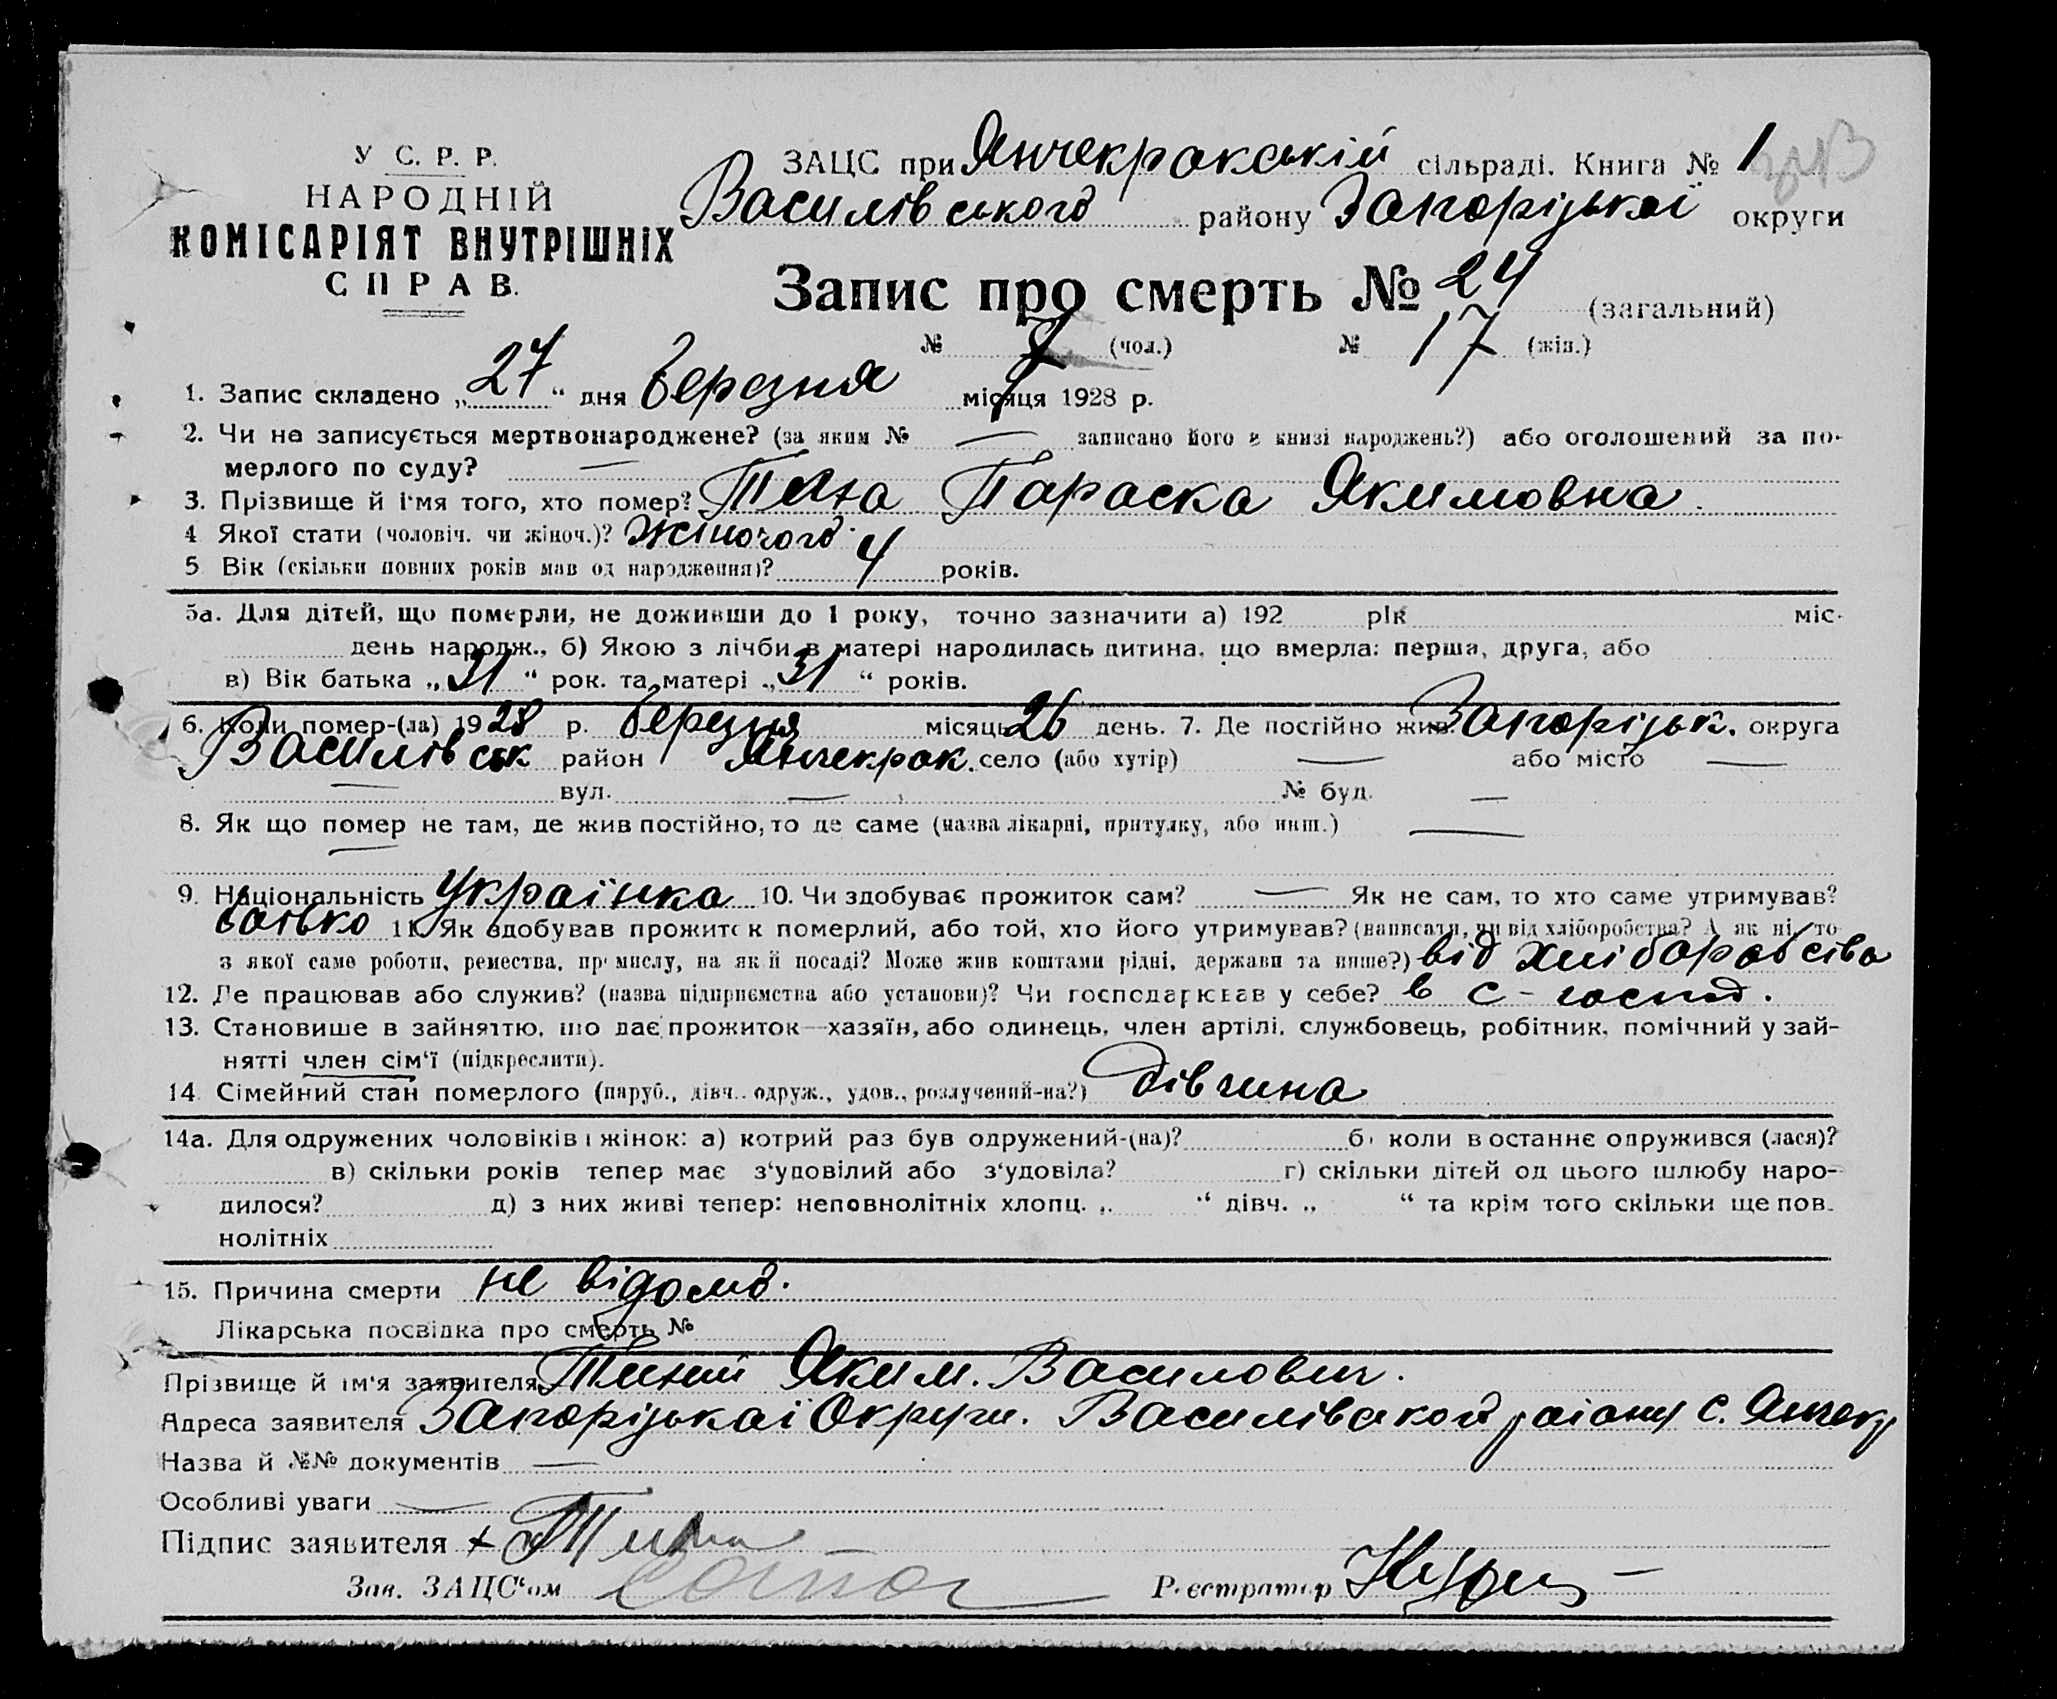 У С. Р. Р.
НАРОДНІЙ
КОМІСАРІЯТ ВНУТРІШНІХ
СПРАВ.
ЗАЦС при Янчекракській сільраді. Книга № 1
Василівського району Запорізької округи
Запис про смерть № 24 (загальний)
№ 7 (чол.) № 17 (жін.)
1. Запис складено „27“ дня березня місяця 1928 р.
2. Чи не записується мертвонароджене? (за яким № — записано його в книзі народжень?) або оголошений за по-
мерлого по суду? —
3. Прізвище й і'мя того, хто помер? Тиха Параска Якимовна.
4 Якої стати (чоловіч. чи жіноч.)? Жіночого.
5 Вік (скільки повних років мав од народження)? 4 років.
5а. Для дітей, що померли, не доживши до 1 року, точно зазначити а) 192 рік міс.
день народж., б) Якою з лічби в матері народилась дитина, що вмерла: перша, друга, або
в) Вік батька „31“ рок. та матері „31“ років.
6. Коли помер-(ла) 1928 р. березня місяць 26 день. 7. Де постійно жив? Запорізьк. округа
Василівськ район Янчекрак. село (або хутір) — або місто —
— вул. — № буд. —
8. Як що помер не там, де жив постійно, то де саме (назва лікарні, притулку, або инш.) —
9. Національність Українка 10. Чи здобуває прожиток сам? — Як не сам, то хто саме утримував?
батько 11. Як здобував прожиток померлий, або той, хто його утримував? (написати, чи від хліборобства? А як ні, то
з якої саме роботи, ремества, промислу, на якій посаді? Може жив коштами рідні, держави та инше?) від хліборобства
12. Де працював або служив? (назва підприємства або установи)? Чи господарював у себе? в с-госпód.
13. Становище в зайняттю, що дає прожиток—хазяїн, або одинець, член артілі, службовець, робітник, помічний у зай-
нятті член сім'ї (підкреслити).
14. Сімейний стан померлого (паруб., дівч., одруж., удов., розлучений-на?) дівчина
14а. Для одружених чоловіків і жінок: а) котрий раз був одружений-(на)? б) коли в останнє одружився (лася)?
в) скільки років тепер має з'удовілий або з'удовіла? г) скільки дітей од цього шлюбу наро-
дилося? д) з них живі тепер: неповнолітніх хлопц. „ “ дівч. „ “ та крім того скільки ще пов-
нолітніх
15. Причина смерти не відомо.
Лікарська посвідка про смерть №
Прізвище й ім'я заявителя Тихий Яким. Василович.
Адреса заявителя Запорізької Округи. Василівского раіону с. Янчекр
Назва й №№ документів —
Особливі уваги —
Підпис заявителя + Тихи
Зав. ЗАЦС'ом
Реєстратор